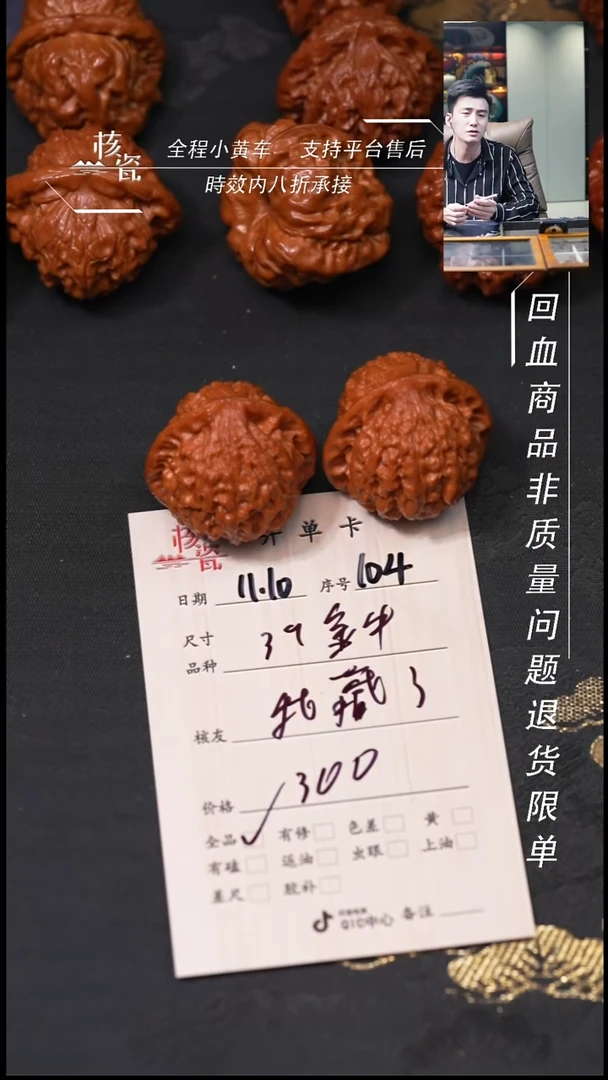 核瓷
全程小黄车 支持平台售后
時效内八折承接
回血商品非质量问题退货限单
核瓷 开单卡
日期 11.10 序号 104
尺寸
品种 39
核友
价格 300
全品 ✓ 有修 色差 黄
有磕 运油 虫眼 上油
差尺 胶补
QIC中心 备注